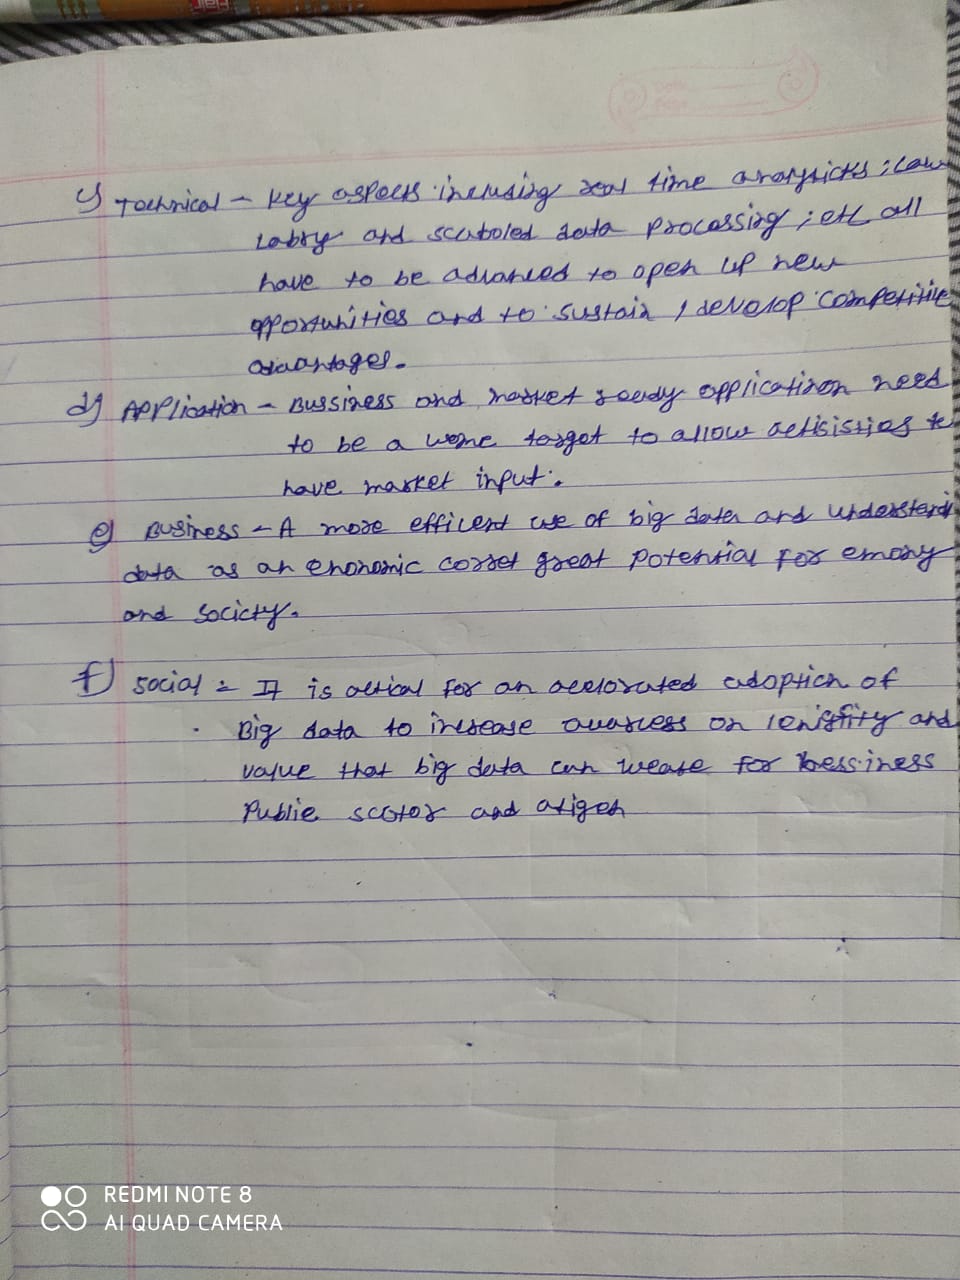 c) Technical - Key aspects including real time analyticks ; Low
Latory and scaboled data processing ; etc all
have to be advanced to open up new
opportunities and to sustain / develop competitive
advantages.
d) Application - Bussiness and market ready application need
to be a wone target to allow actisisties to
have market input.
e) Business - A more efficent use of big data and understandi
data as an enonomic corset great potential for emony
and society.
f) Social = It is for an accelorated adoption of
Big data to increase awarcess on and
value that big data can wease for bessiness
Public sector and
REDMI NOTE 8
AI QUAD CAMERA